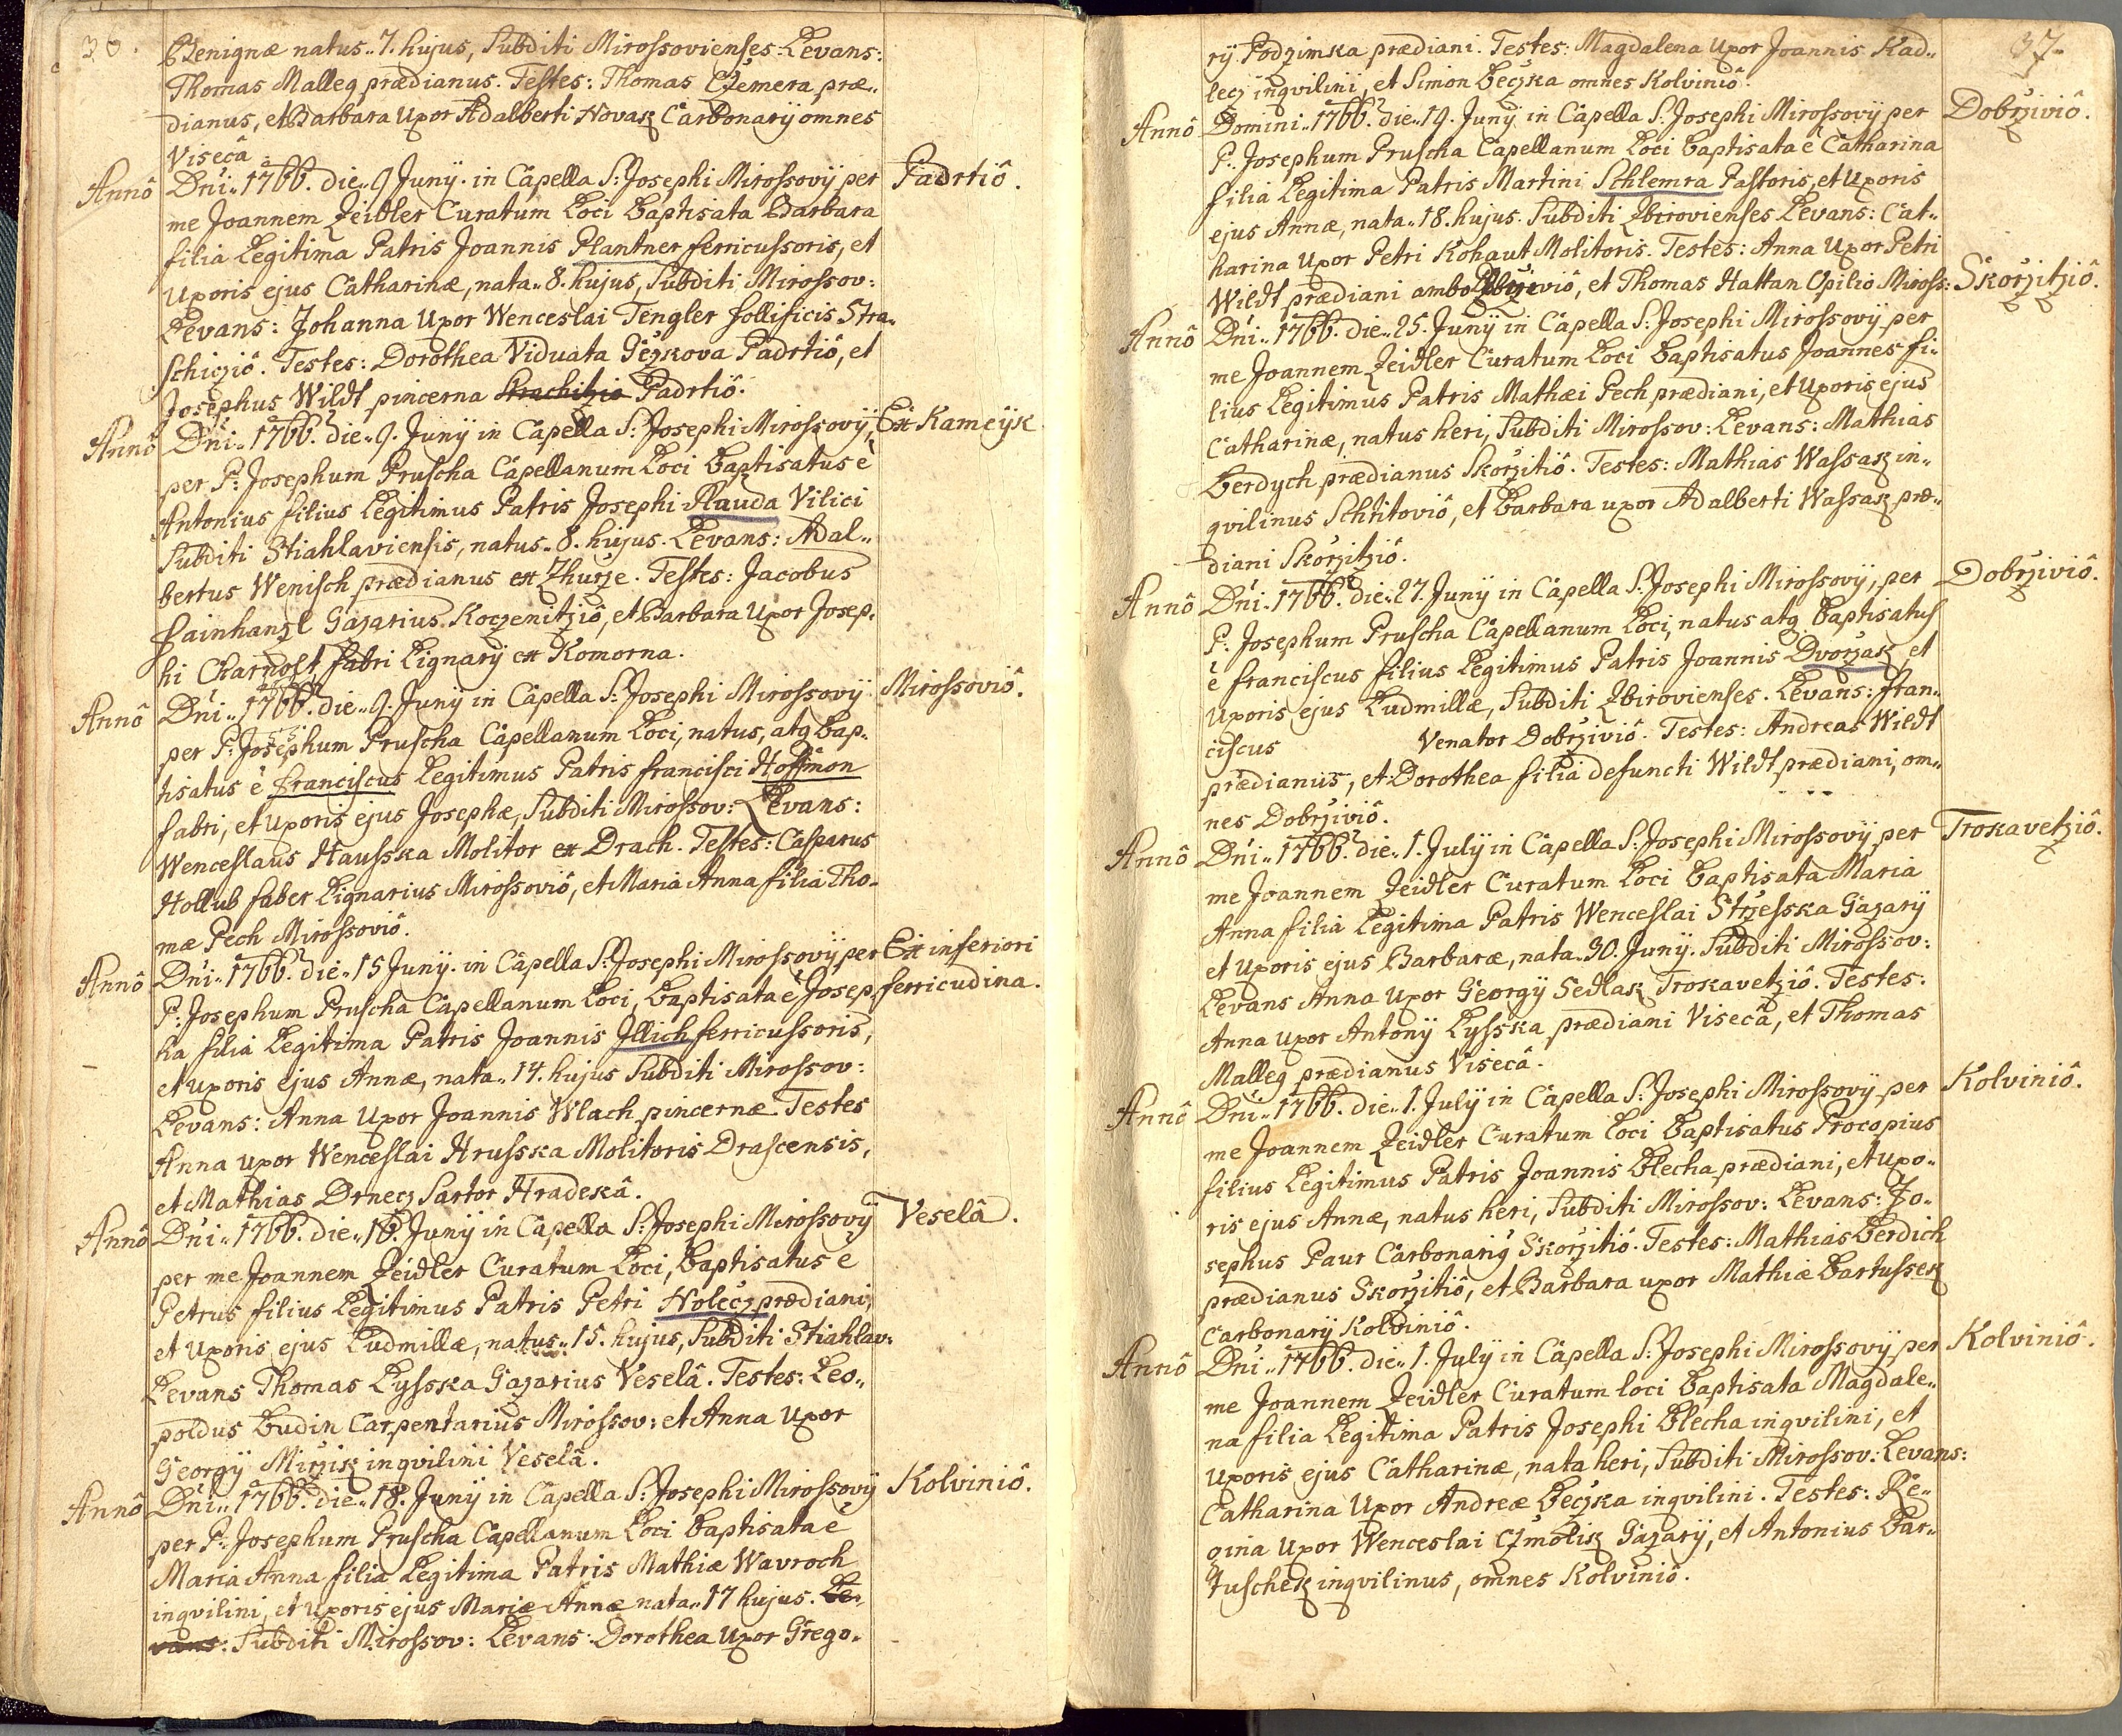 36.
Benignæ natus.. 7. hujus, Subditi Mirossovienses. Levans:
Thomas Malleg prædianus. Testes: Thomas Cžemera præ..
dianus, et Barbara Uxor Adalberti Novak Carbonarÿ omnes
Visecâ
Annô Dni.. 1766. die.. 9 Junÿ. in Capella S: Josephi Mirossovÿ per Padrtiô.
me Joannem Zeidler Curatum Loci baptisata Barbara
filia Legitima Patris Joannis Plantner ferricussoris, et
Uxoris ejus Catharinæ, nata.. 8. hujus, Subditi Mirossov:
Levans: Johanna Uxor Wenceslai Tengler follificis Stra..
schiziô. Testes: Dorothea Viduata Gezkova Padrtiô, et
Josephus Wildt pincerna Strachitziô Padrtiô.
Annô Dni.. 1766. die.. 9. Junÿ in Capella S: Josephi Mirossovÿ, Ex Kameÿk
per P: Josephum Pruscha Capellanum Loci baptisatus è
Antonius filius Legitimus Patris Josephi Rauda Vilici
Subditi Stiahlaviensis, natus.. 8. hujus. Levans: Adal..
bertus Wenisch prædianus ex Zhurze. Testes: Jacobus
Hainhanzl Gazarius Koczenitziô, et Barbara Uxor Josep..
hi Charnost, fabri Lignarÿ ex Komorna.
Annô Dni.. 1766. die.. 9. Junÿ in Capella S: Josephi Mirossovÿ Mirossoviô.
per P: Josephum Pruscha Capellanum Loci, natus, atq bap..
tisatus è Franciscus Legitimus Patris Francisci Hoffmon
fabri, et Uxoris ejus Josephæ, Subditi Mirossov: Levans:
Wenceslaus Hausska Molitor ex Drach. Testes: Casparus
Hollub faber Lignarius Mirossoviô, et Maria Anna filia Tho..
mæ Pech Mirossoviô.
Annô Dni.. 1766. die.. 15 Junÿ. in Capella S: Josephi Mirossovÿ per Ex inferiori
P: Josephum Pruscha Capellanum Loci, baptisata è Josep.. ferricudina.
ha filia Legitima Patris Joannis Illich ferricussoris,
et uxoris ejus Annæ, nata.. 14. hujus Subditi Mirossov:
Levans: Anna Uxor Joannis Wlach pincernæ. Testes
Anna uxor Wenceslai Hrusska Molitoris Drascensis,
et Mathias Drnecz Sartor Hradeskâ.
Annô Dni.. 1766. die.. 16. Junÿ in Capella S: Josephi Mirossovÿ Veselâ.
per me Joannem Zeidler Curatum Loci, baptisatus è
Petrus filius Legitimus Patris Petri Holecz prædiani,
et Uxoris ejus Ludmillæ, natus.. 15. hujus, Subditi Stiahlav:
Levans Thomas Lysska Gazarius Veselâ. Testes: Leo..
poldus Budin Carpentarius Mirossov: et Anna Uxor
Georgÿ Mirzik inqvilini Veselâ.
Annô Dni.. 1766. die.. 18. Junÿ in Capella S: Josephi Mirossovÿ Kolviniô.
per P: Josephum Pruscha Capellanum Loci baptisata è
Maria Anna filia Legitima Patris Mathiæ Wavroch
inqvilini, et Uxoris ejus Mariæ Annæ nata.. 17 hujus. Le..
vans: Subditi Mirossov: Levans: Dorothea Uxor Grego..
37.
rÿ Podzimka prædiani. Testes: Magdalena Uxor Joannis Kad..
lecz inqvilini, et Simon Beczka omnes Kolviniô.
Annô Domini.. 1766. die.. 19. Junÿ in Capella S: Josephi Mirossovÿ per Dobrziviô.
P. Josephum Pruscha Capellanum Loci baptisata è Catharina
filia Legitima Patris Martini Schlemra Pastoris, et Uxoris
ejus Annæ, nata.. 18. hujus. Subditi Zbirovienses Levans: Cat..
harina Uxor Petri Kohaut Molitoris. Testes: Anna Uxor Petri
Wildt prædiani ambo Dobrziviô, et Thomas Hattan Opilio Miross: Skorzitziô.
Annô Dni.. 1766. die.. 25. Junÿ in Capella S: Josephi Mirossovÿ per
me Joannem Zeidler Curatum Loci baptisatus Joannes fi..
lius Legitimus Patris Mathæi Pech prædiani, et Uxoris ejus
Catharinæ, natus heri, Subditi Mirossov: Levans: Mathias
Berdych prædianus Skorzitiô. Testes: Mathias Wassak in..
qvilinus Schtitoviô, et Barbara uxor Adalberti Wassak præ..
diani Skorzitziô.
Annô Dni.. 1766. die.. 27. Junÿ in Capella S: Josephi Mirossovÿ, per Dobrziviô.
P. Josephum Pruscha Capellanum Loci, natus atq baptisatus
è Franciscus filius Legitimus Patris Joannis Dvorzak, et
Uxoris ejus Ludmillæ, Subditi Zbirovienses. Levans: Fran..
ciscus Venator Dobrziviô. Testes: Andreas Wildt
prædianus, et Dorothea filia defuncti Wildt prædiani, om..
nes Dobrziviô.
Annô Dni.. 1766. die.. 1. Julÿ in Capella S: Josephi Mirossovÿ per Trokavetziô.
me Joannem Zeidler Curatum Loci baptisata Maria
Anna filia Legitima Patris Wenceslai Strzesska Gazarÿ
et Uxoris ejus Barbaræ, nata.. 30. Junÿ. Subditi Mirossov:
Levans Anna Uxor Georgÿ Sedlak Trokavetziô. Testes:
Anna uxor Antonÿ Lysska prædiani Visecâ, et Thomas
Malleg prædianus Visecâ.
Annô Dni.. 1766. die.. 1. Julÿ in Capella S: Josephi Mirossovÿ per Kolviniô.
me Joannem Zeidler Curatum Loci baptisatus Procopius
filius Legitimus Patris Joannis Blecha prædiani, et Uxo..
ris ejus Annæ, natus heri, Subditi Mirossov: Levans: Jo..
sephus Paur Carbonari9 Skorzitiô. Testes: Mathias Berdich
prædianus Skorzitiô, et Barbara uxor Mathiæ Bartussek
Carbonarÿ Kolviniô.
Annô Dni.. 1766. die.. 1. Julÿ in Capella S: Josephi Mirossovÿ per Kolviniô.
me Joannem Zeidler Curatum loci baptisata Magdale..
na filia Legitima Patris Josephi Blecha inqvilini, et
Uxoris ejus Catharinæ, nata heri, Subditi Mirossov: Levans:
Catharina Uxor Andreæ Beczka inqvilini. Testes: Re..
gina Uxor Wenceslai Czmolik Gazarÿ, et Antonius Bar..
tuschek inqvilinus, omnes Kolviniô.